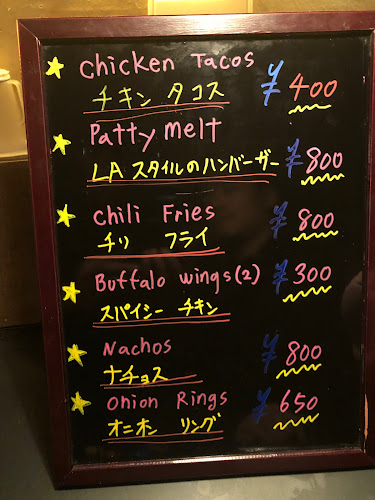 Chicken Tacos ¥400
チキン タコス
Patty Melt
LA スタイルのハンバーガー ¥800
Chili Fries ¥800
チリ フライ
Buffalo wings(2) ¥300
スパイシー チキン
Nachos ¥800
ナチョス
Onion Rings ¥650
オニオン リング